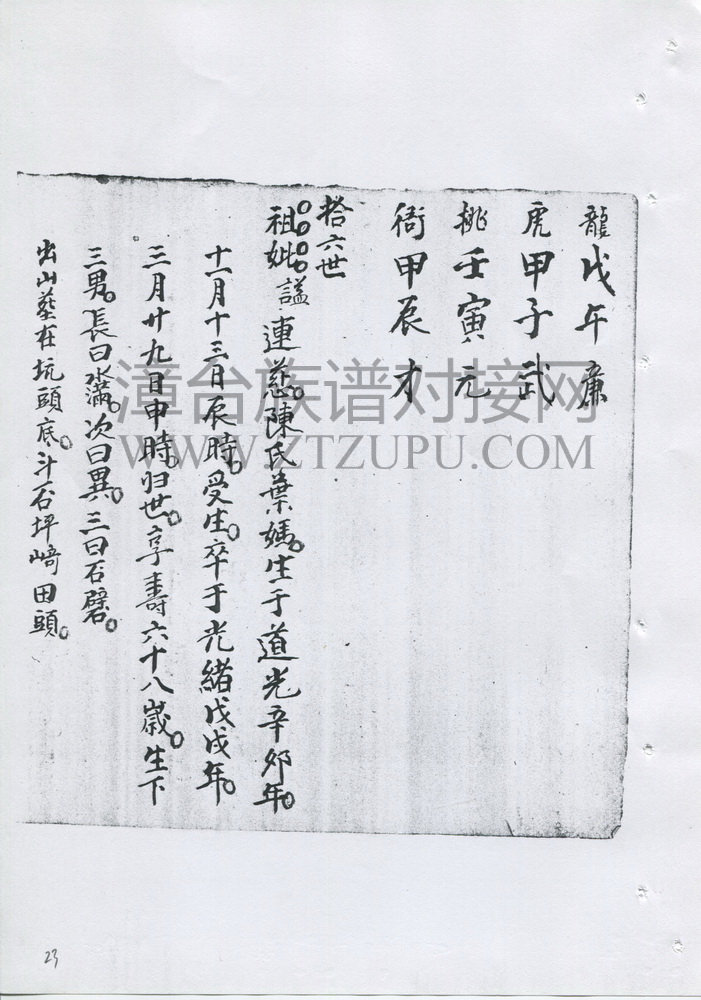 龍戊午廉
虎甲子武
挑壬寅元
衙甲辰才
拾六世
祖妣。謚連慈。陳氏葉媽。生于道光辛卯年。
十一月十三日辰時。受生。卒于光緒戊戌年。
三月廿九日申時。归世。享壽六十八歲。生下
三男。長曰水滿。次曰異。三曰石礕。
出山葬在坑頭底。斗石坪崎田頭。
漳台族谱对接网
WWW.ZTZUPU.COM
23